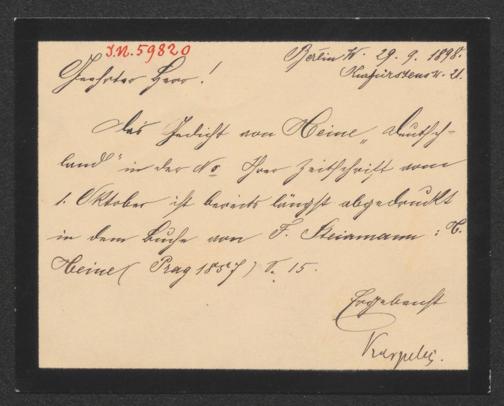 I.N. 59820
Berlin W. 29. 9. 1898.
Kurfürstenstr. 21.
Geehrter Herr!
Das Gedicht von Heine „Deutsch-
land" in der No Ihrer Zeitschrift vom
1. Oktober ist bereits längst abgedruckt
in dem Buche von F. Steinmann: H.
Heine (Prag 1857) S. 15.
Ergebenst
Karpeles.